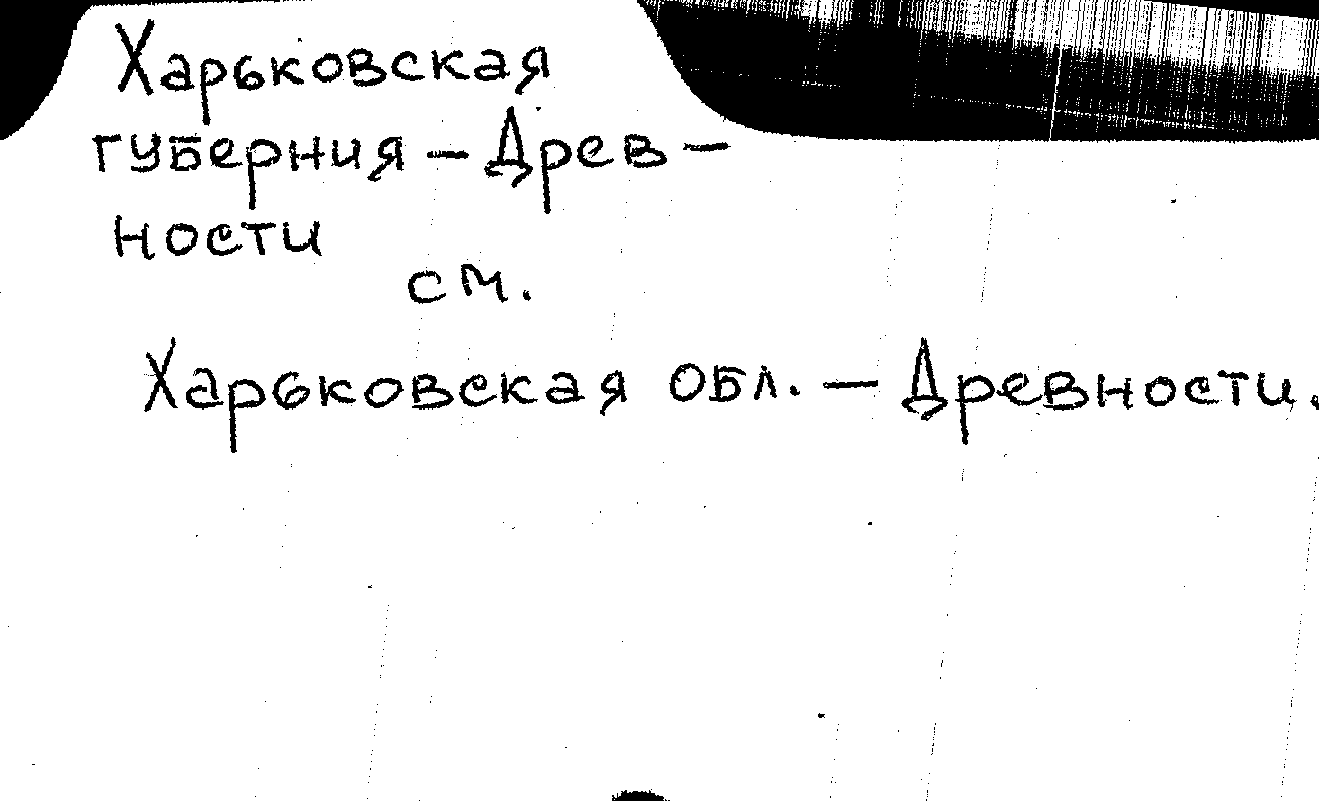 Харьковская
губерния — Древ-
ности
см.
Харьковская обл. — Древности.